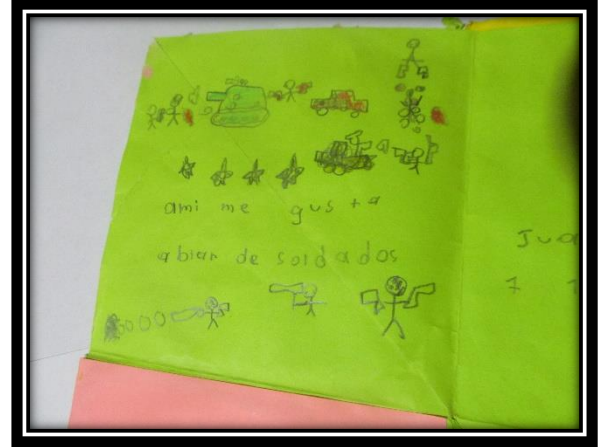 ami me gusta
ablar de soldados
Jua